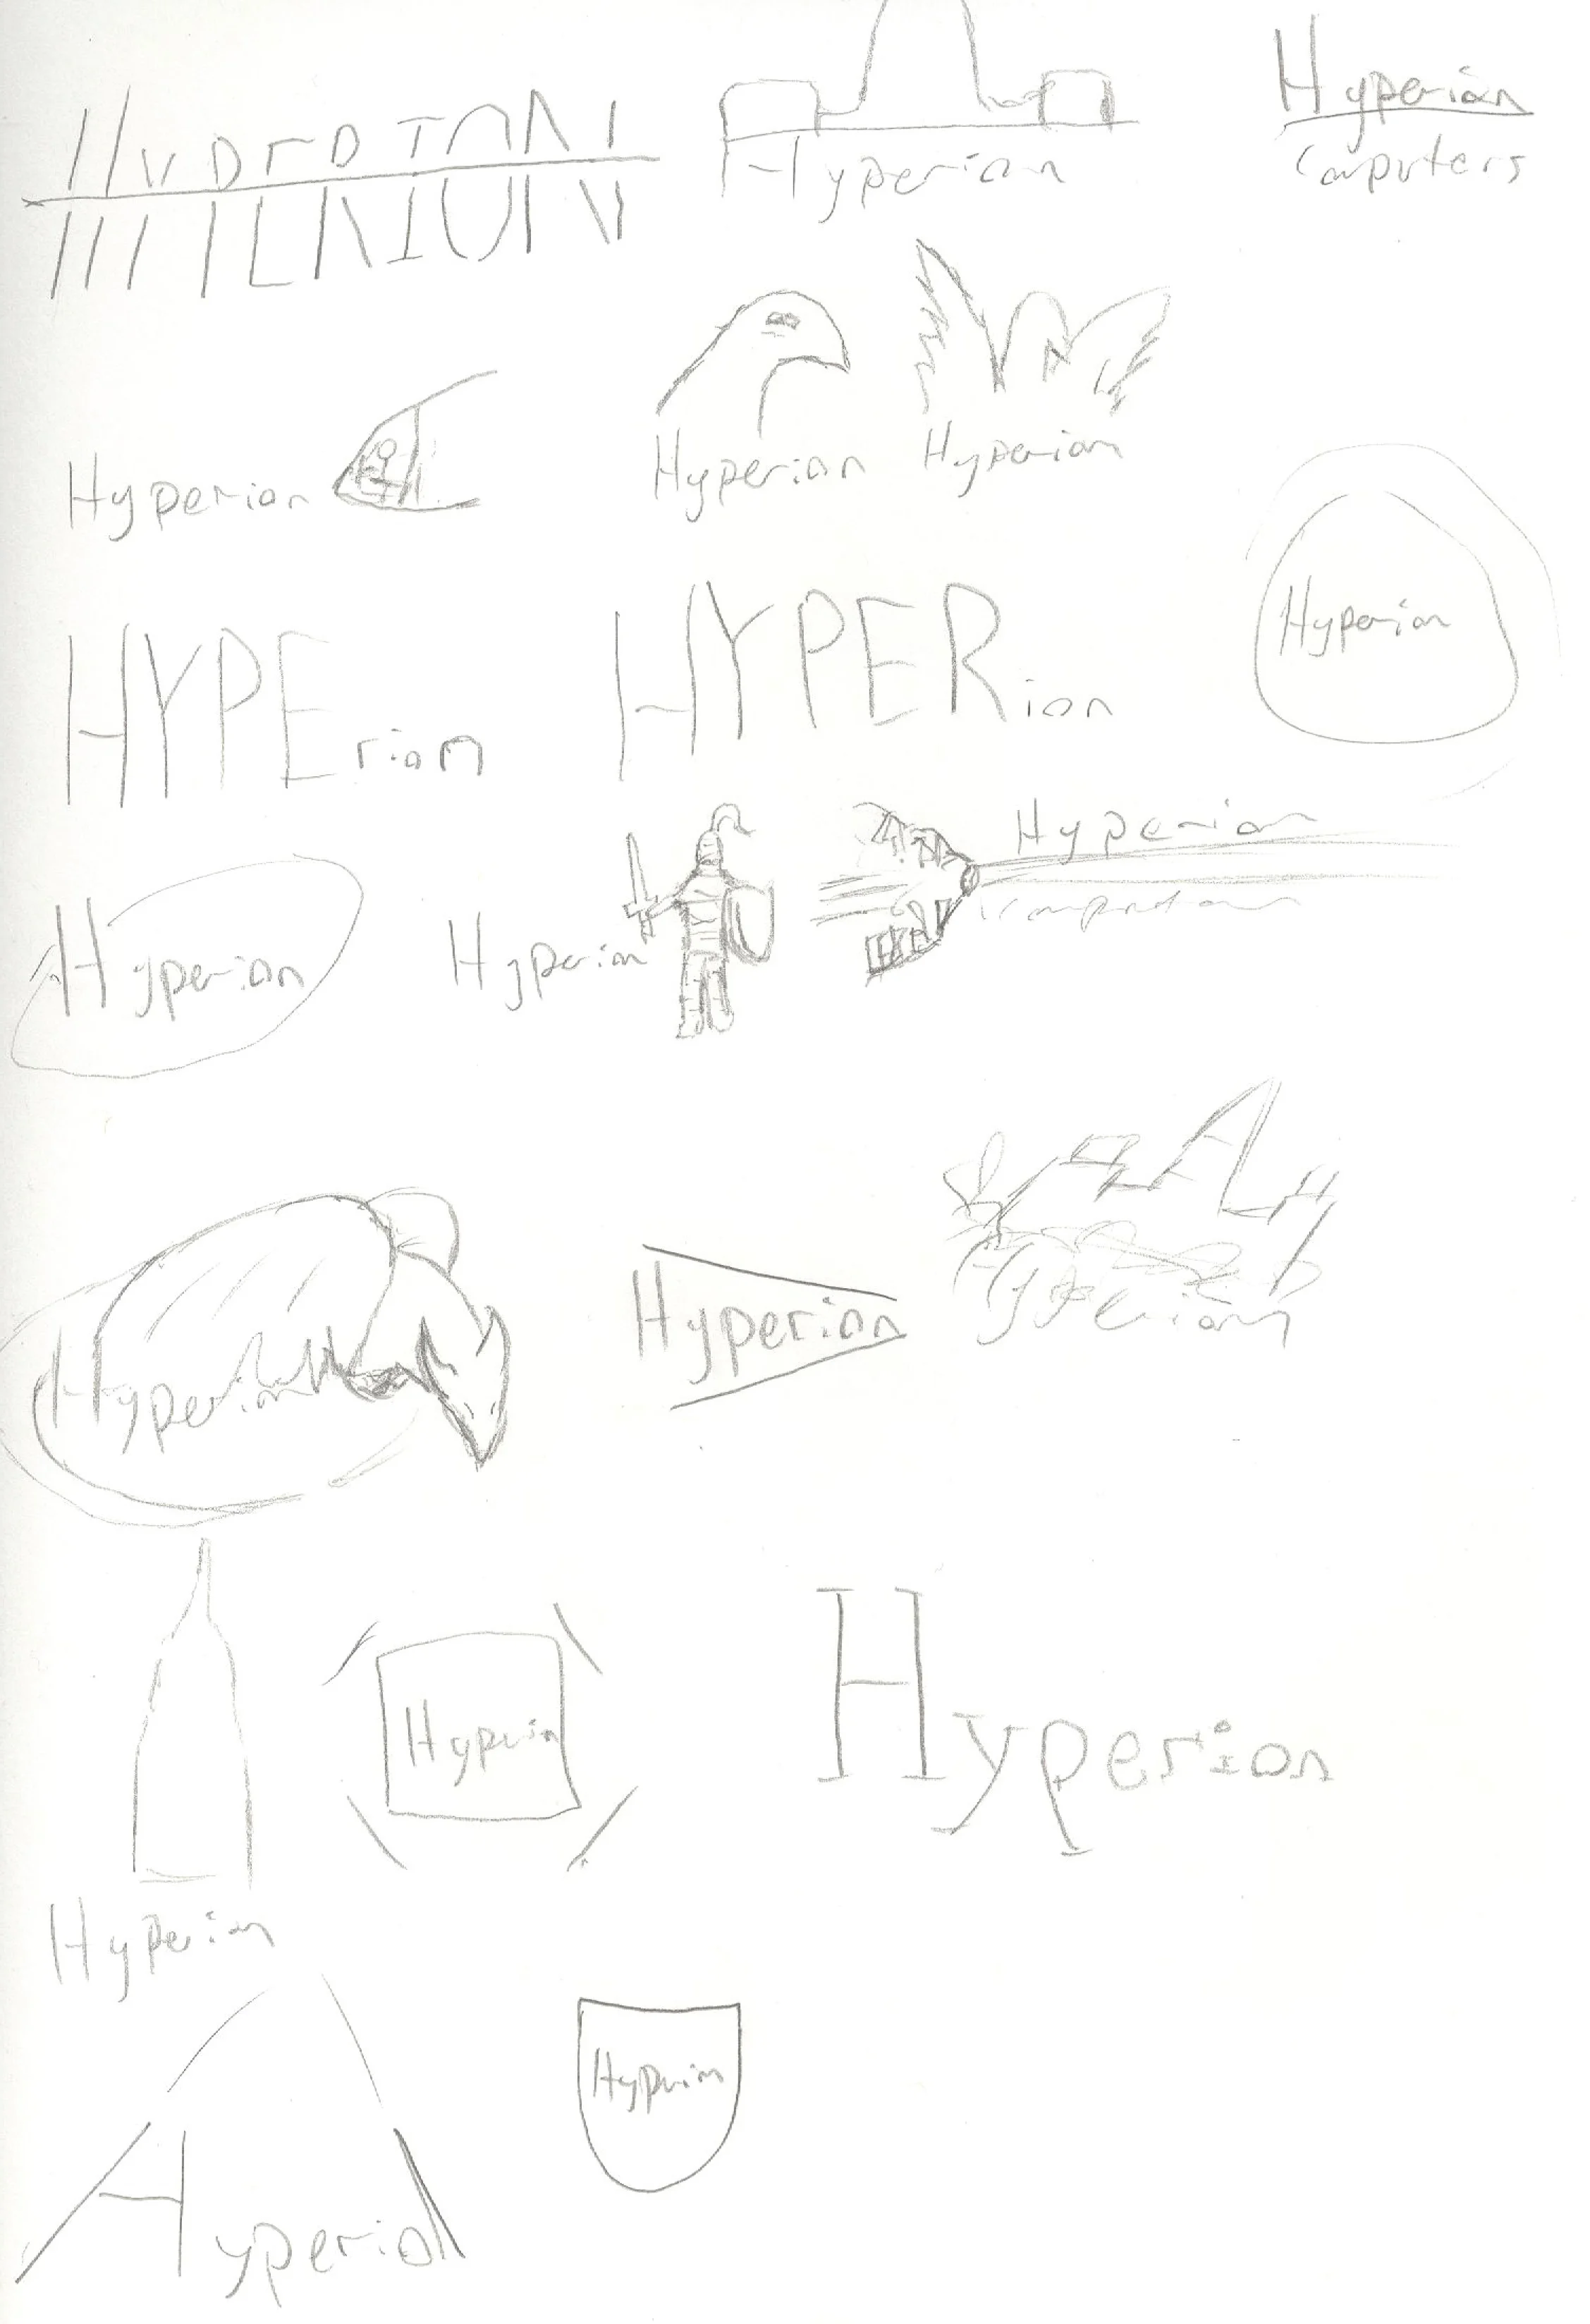 HYPERION
Hyperion
Hyperian
Computers
Hyperion
Hyperion
Hyperion
HYPErion
HYPERion
Hyperion
Hyperion
Hyperion
Hyperion
Hyperion
Hyperion
Hyperion
Hyperion
Hyperion
Hyperion
Hyperion
Hyperion